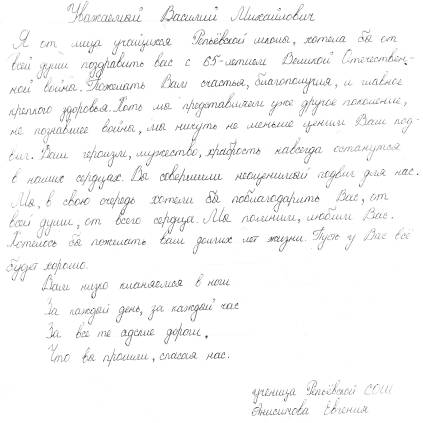 Уважаемый Василий Михайлович
Я от лица учащихся Репьёвской школы, хотела бы от
всей души поздравить вас с 65-летием Великой Отечествен-
ной войны. Пожелать Вам счастья, благополучия, и главное
крепкого здоровья. Хоть мы представляем уже другое поколение,
не познавшее войны, мы ничуть не меньше ценим Ваш под-
виг. Ваш героизм, мужество, храбрость навсегда останутся
в наших сердцах. Вы совершили неоценимый подвиг для нас.
Мы, в свою очередь хотели бы поблагодарить Вас, от
всей души, от всего сердца. Мы помним, любим Вас.
Хотелось бы пожелать вам долгих лет жизни. Пусть у Вас всё
будет хорошо.
Вам низко кланяемся в ноги
За каждый день, за каждый час
За все те адские дороги,
Что вы прошли, спасая нас.
ученица Репьёвской СОШ
Анисимова Евгения